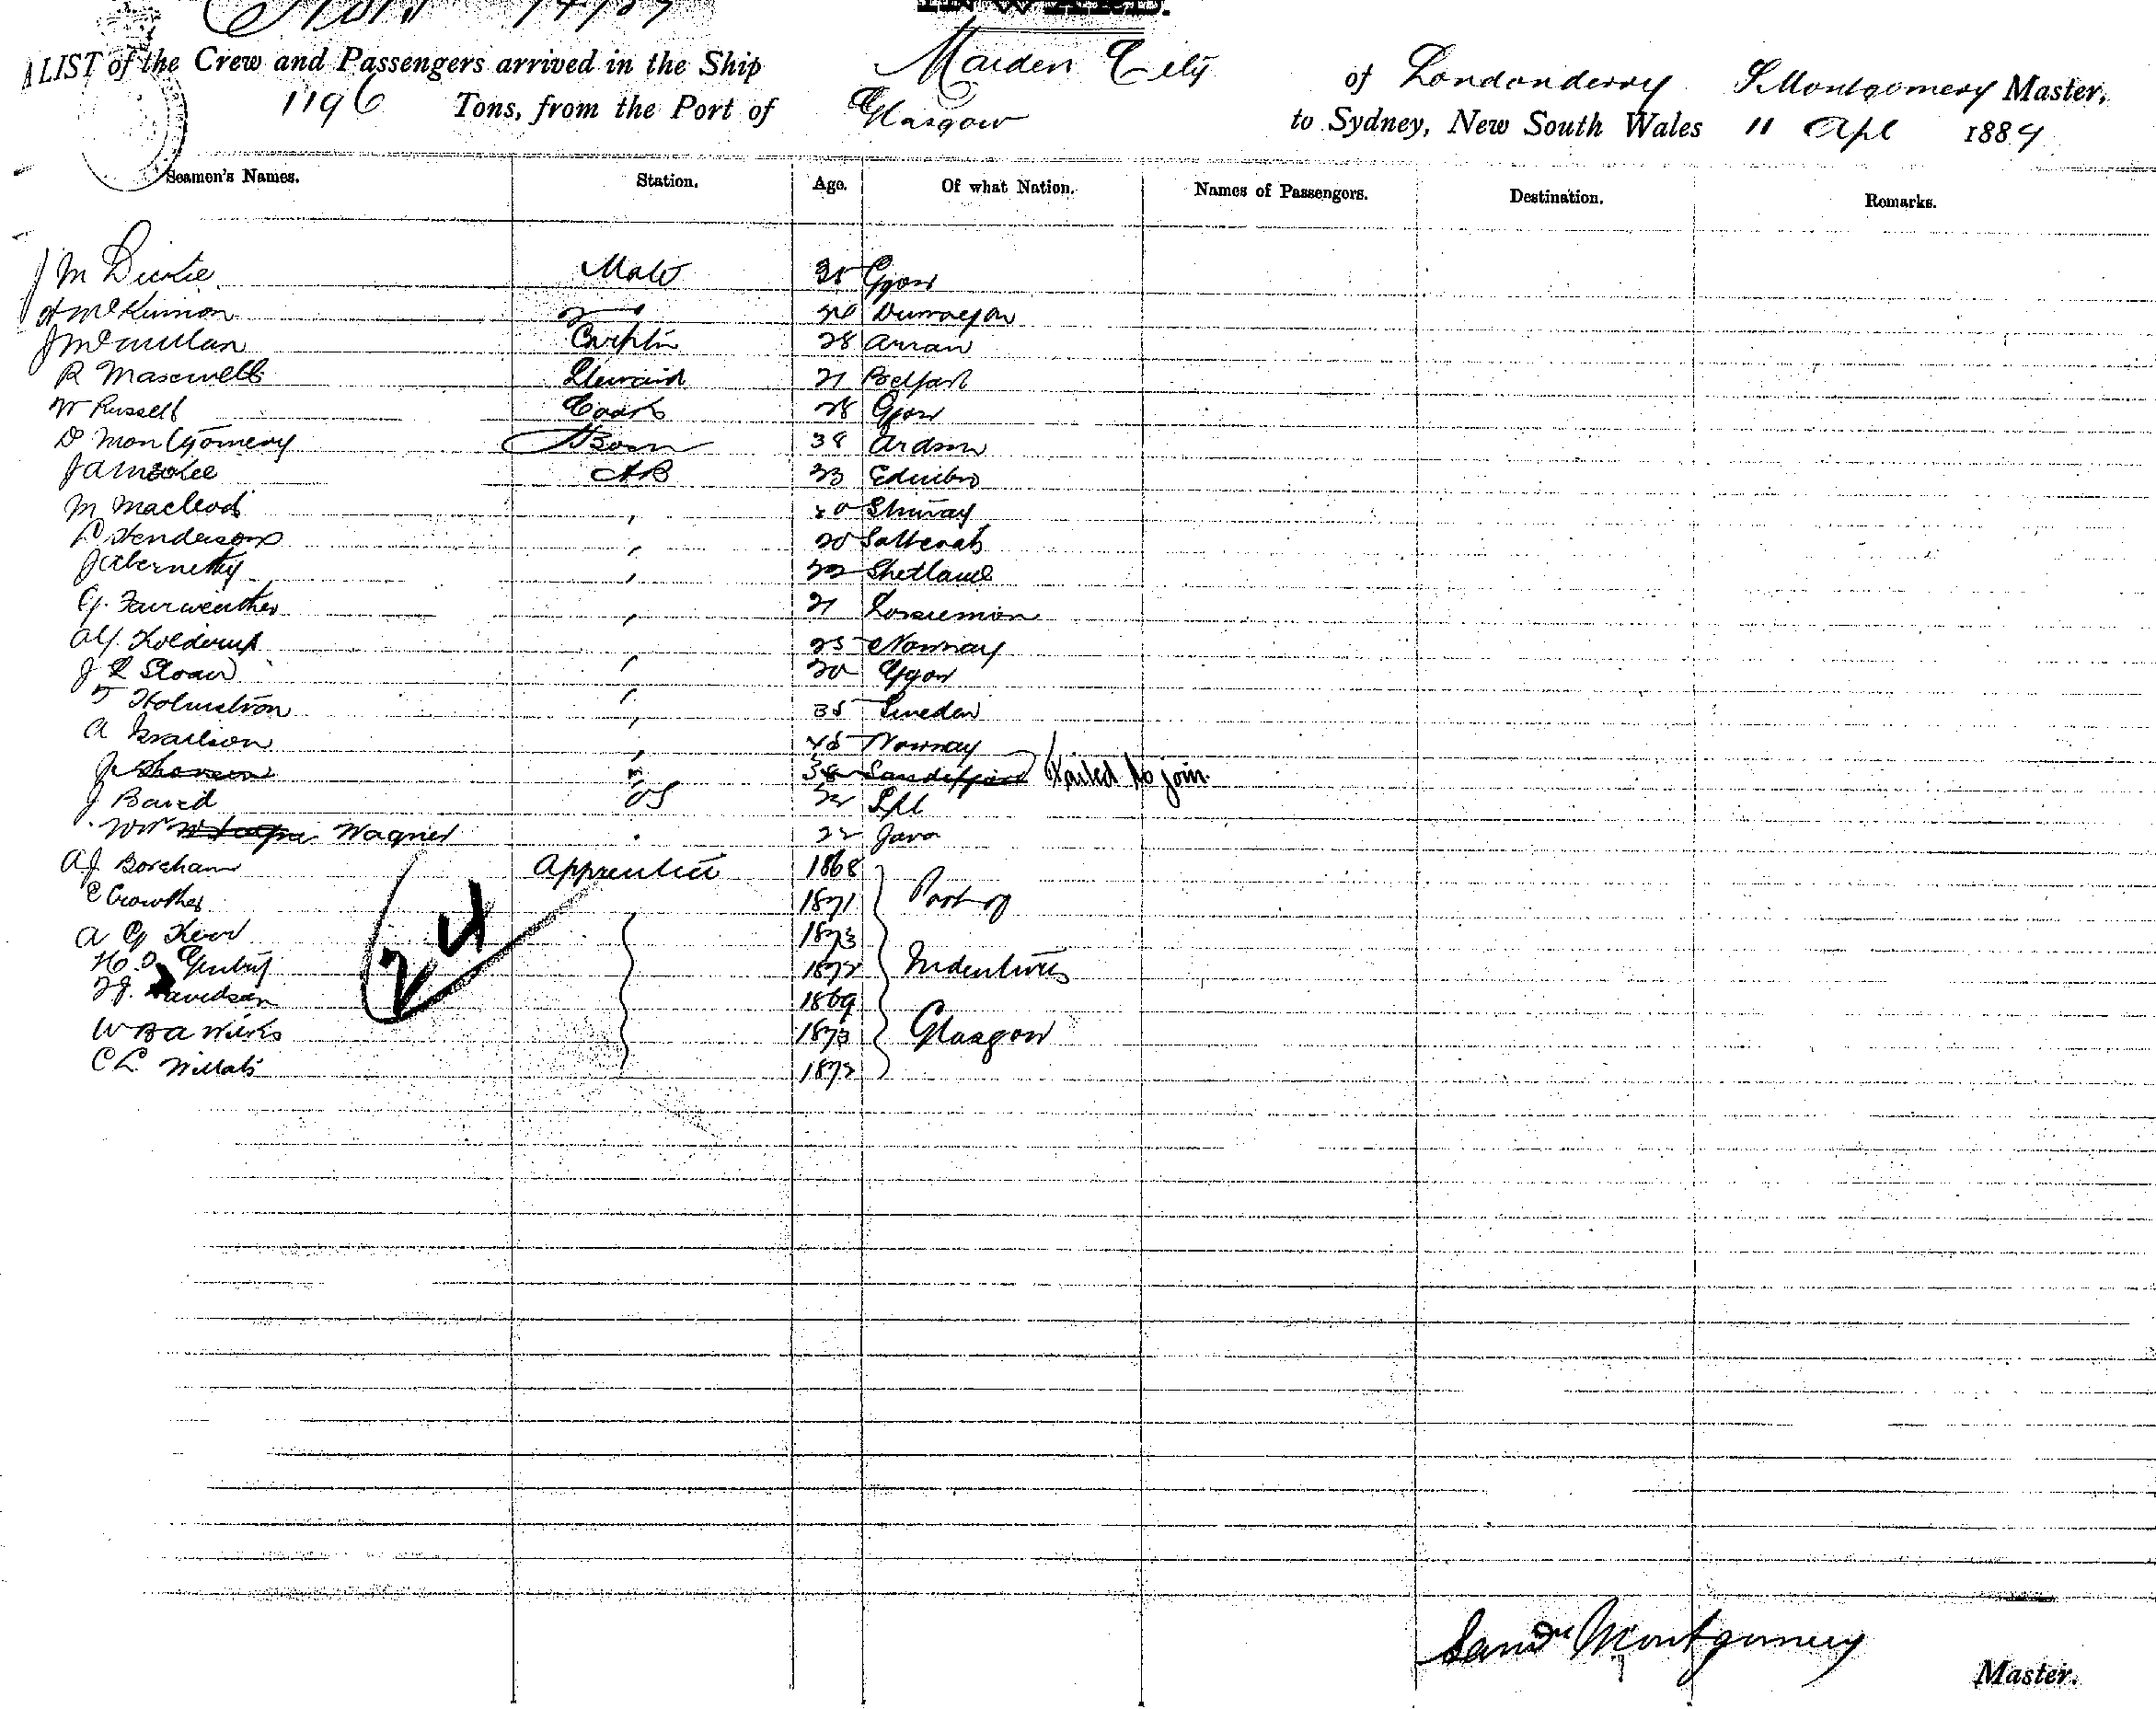 INWARD.
A LIST of the Crew and Passengers arrived in the Ship Maiden City of Londonderry S Montgomery Master,
1196 Tons, from the Port of Glasgow to Sydney, New South Wales 11 Apl 1889
Seamen's Names. Station. Age. Of what Nation. Names of Passengers. Destination. Remarks.
J M Dickie Mate 35 Ggow
A McKinnon 2 " 26
J McMillan Carptn 28 Arran
R Maxwell Steward 21 Belfast
W Russell Cook 28 Ggow
D Montgomery Bosn 38 Ardsn
AB 23 Edinbro
M Macleod "
D Henderson " 20 Saltcoats
J Abernethy " 22 Shetland
G. Fairweather " 21
Alf. Kolderup " 25 Norway
J R Sloan " 20 Ggow
F Holmstrom " 35 Sweden
A Israelson " 46 Norway
38 Failed to join.
J Baird OS 22 Lpl
Wm Wagner " 22 Java
A J Boreham Apprentice 1868
E Crowther 1871 Port of
A G Kerr 1873
1872 Indentures
Davidson 1869
W B A Wilks 1873 Glasgow
C L Willats 1872
24
Montgomery
Master.